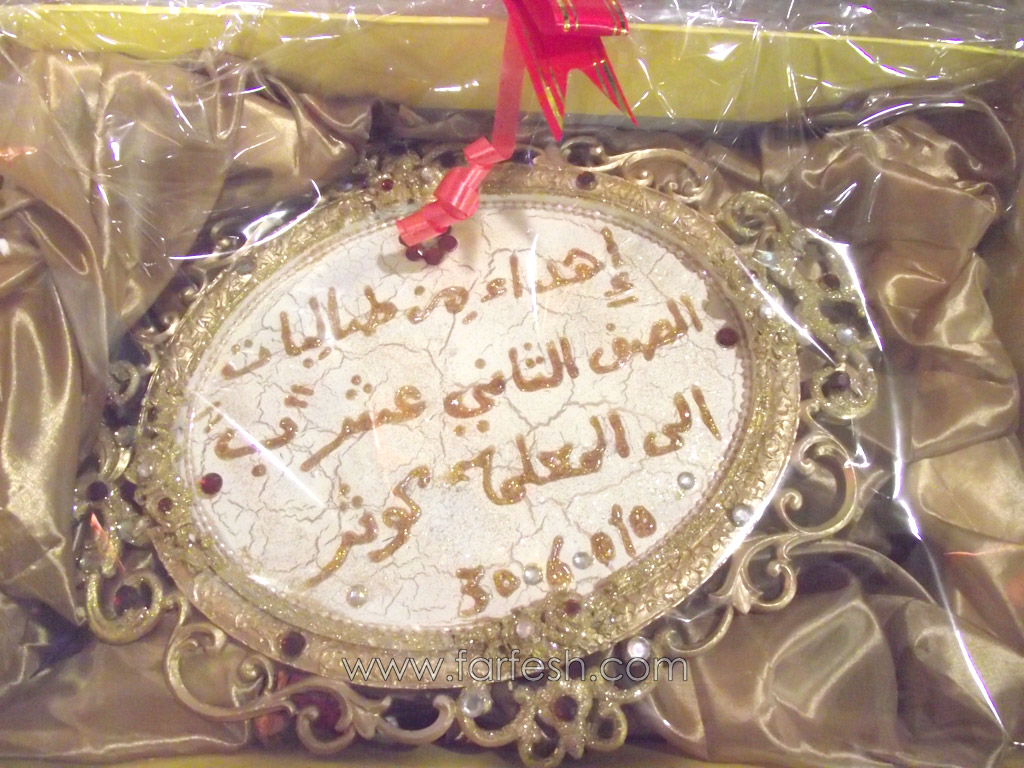 إهداء من طالبات
الصف الثاني عشر "ب"
الى المعلمة كوثر
30.6.010
www.farfesh.com